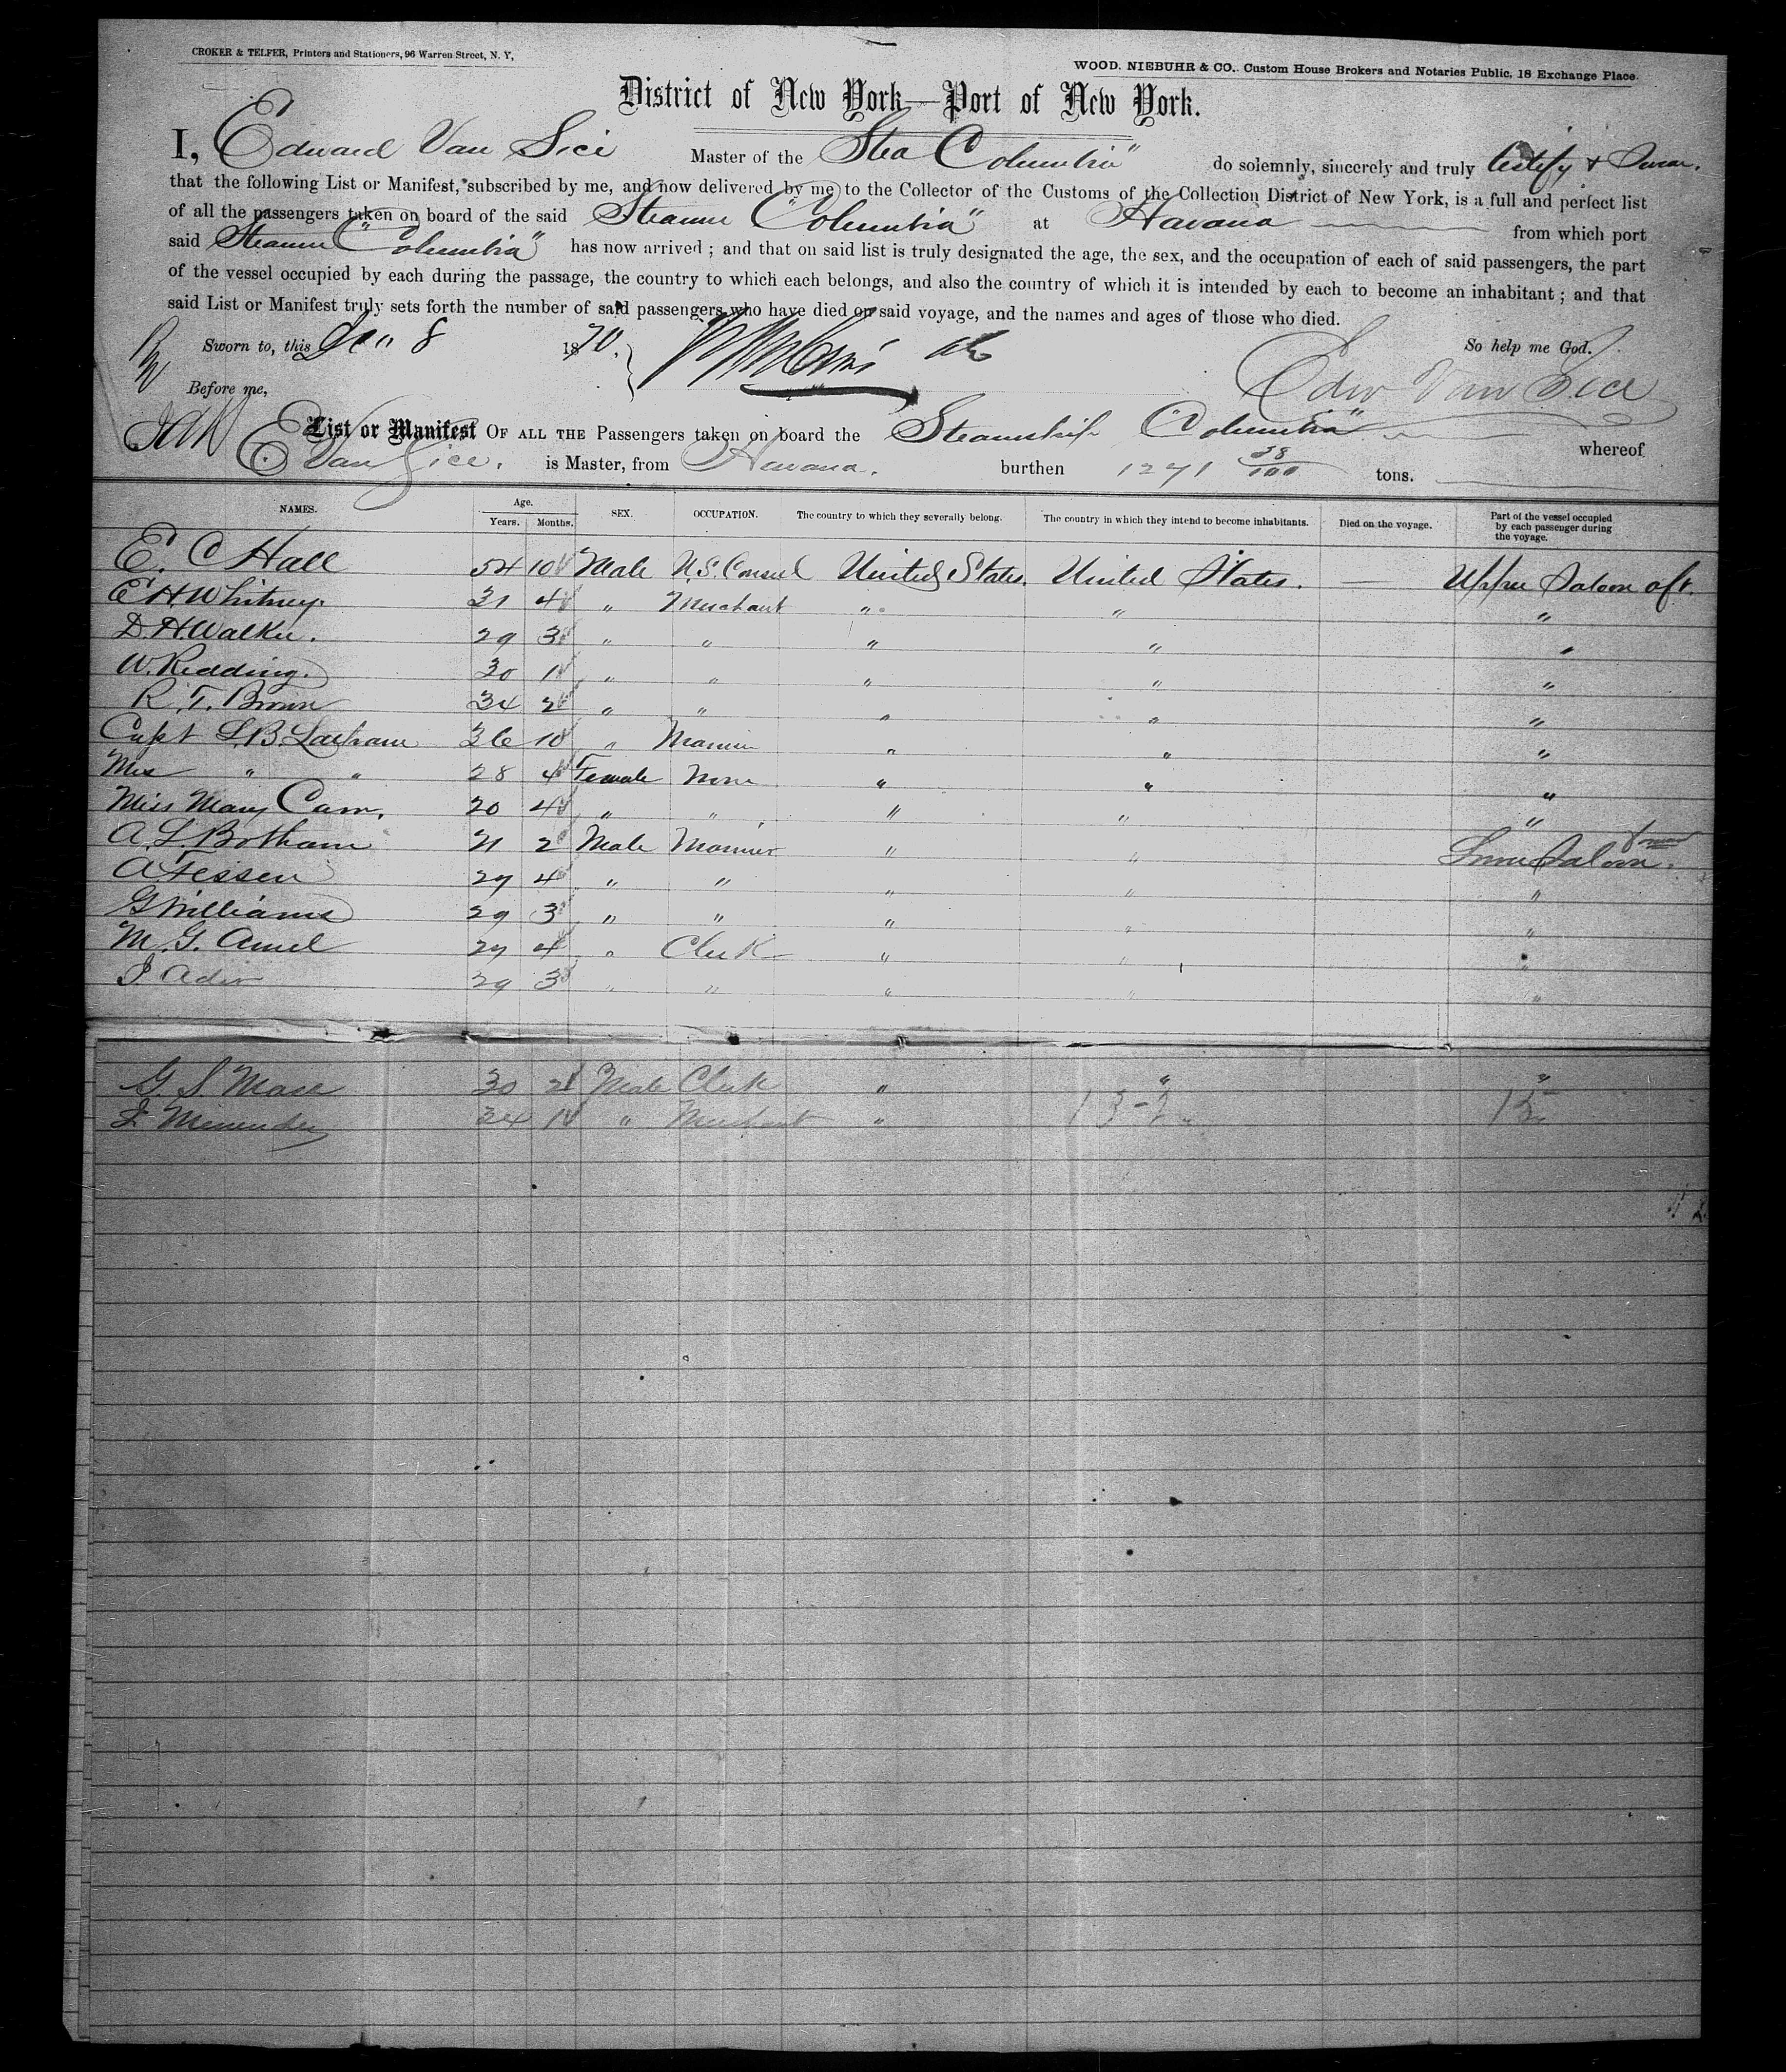 CROKER & TELFER, Printers and Stationers, 96 Warren Street, N. Y,
WOOD. NIEBUHR & CO., Custom House Brokers and Notaries Public, 18 Exchange Place.
District of New York—Port of New York.
I, Edward Van Sice Master of the Stea Columbia" do solemnly, sincerely and truly Certify & Swear.
that the following List or Manifest, subscribed by me, and now delivered by me to the Collector of the Customs of the Collection District of New York, is a full and perfect list
of all the passengers taken on board of the said Steamer "Columbia" at Havana from which port
said Steamer "Columbia" has now arrived ; and that on said list is truly designated the age, the sex, and the occupation of each of said passengers, the part
of the vessel occupied by each during the passage, the country to which each belongs, and also the country of which it is intended by each to become an inhabitant ; and that
said List or Manifest truly sets forth the number of said passengers who have died on said voyage, and the names and ages of those who died.
Sworn to, this 8 1870. So help me God.
Before me, Edw Van Sice
List or Manifest OF ALL THE Passengers taken on board the Steamship "Columbia" whereof
E Van Sice. is Master, from Havana. burthen 1271 38/100 tons.
NAMES. Age. Years. Months. SEX. OCCUPATION. The country to which they severally belong. The country in which they intend to become inhabitants. Died on the voyage. Part of the vessel occupied by each passenger during the voyage.
E. C Hall 54 10 Male U.S. Consul United States. United States. Upper Saloon aft.
E H. Whitney. 31 4 " Merchant " " "
D. H. Walker. 29 3 " " " " "
W. Redding. 30 1 " " " " "
R. T. Brown 34 2 " " " " "
Capt L. B. 36 10 " Mariner " " "
Mrs " " 28 4 Female None " " "
Miss Mary 20 4 " " " " "
A. L. Botham 21 2 Male Mariner " " Saloon.
A. Fessen 27 4 " " " " "
G Williams 29 3 " " " " "
M. G. 27 4 " Clerk " " "
29 3 " " " " "
G. S. 30 2 Male Clerk " " "
34 1 " Merchant " 13-2 " 15